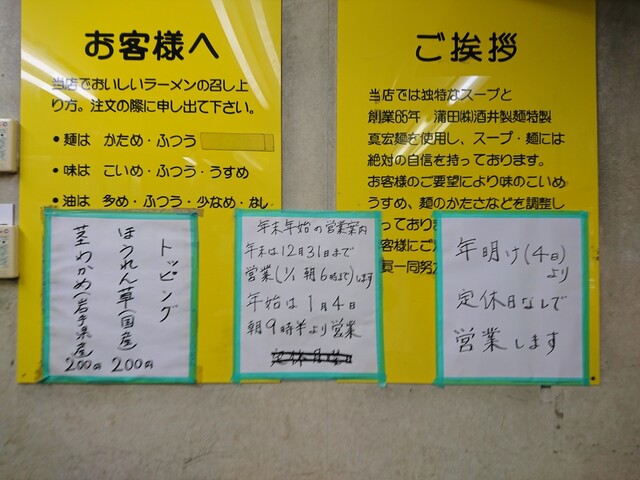 お客様へ
当店でおいしいラーメンの召し上
り方。注文の際に申し出て下さい。
•麺は かため・ふつう
•味は こいめ・ふつう・うすめ
•油は 多め・ふつう・少なめ・なし
ご挨拶
当店では独特なスープと
創業65年 蒲田㈱酒井製麺特製
真宏麺を使用し、スープ・麺には
絶対の自信を持っております。
お客様のご要望により味のこいめ
うすめ、麺のかたさなどを調整し
っておりま
客様にご
員一同努
トッピング
ほうれん草(国産) 200円
茎わかめ(岩手県産) 200円
年末年始の営業案内
年末は12月31日まで
営業(1/1 朝6時まで)します
年始は1月4日
朝9時半より営業
年明け(4日)
より
定休日なしで
営業します